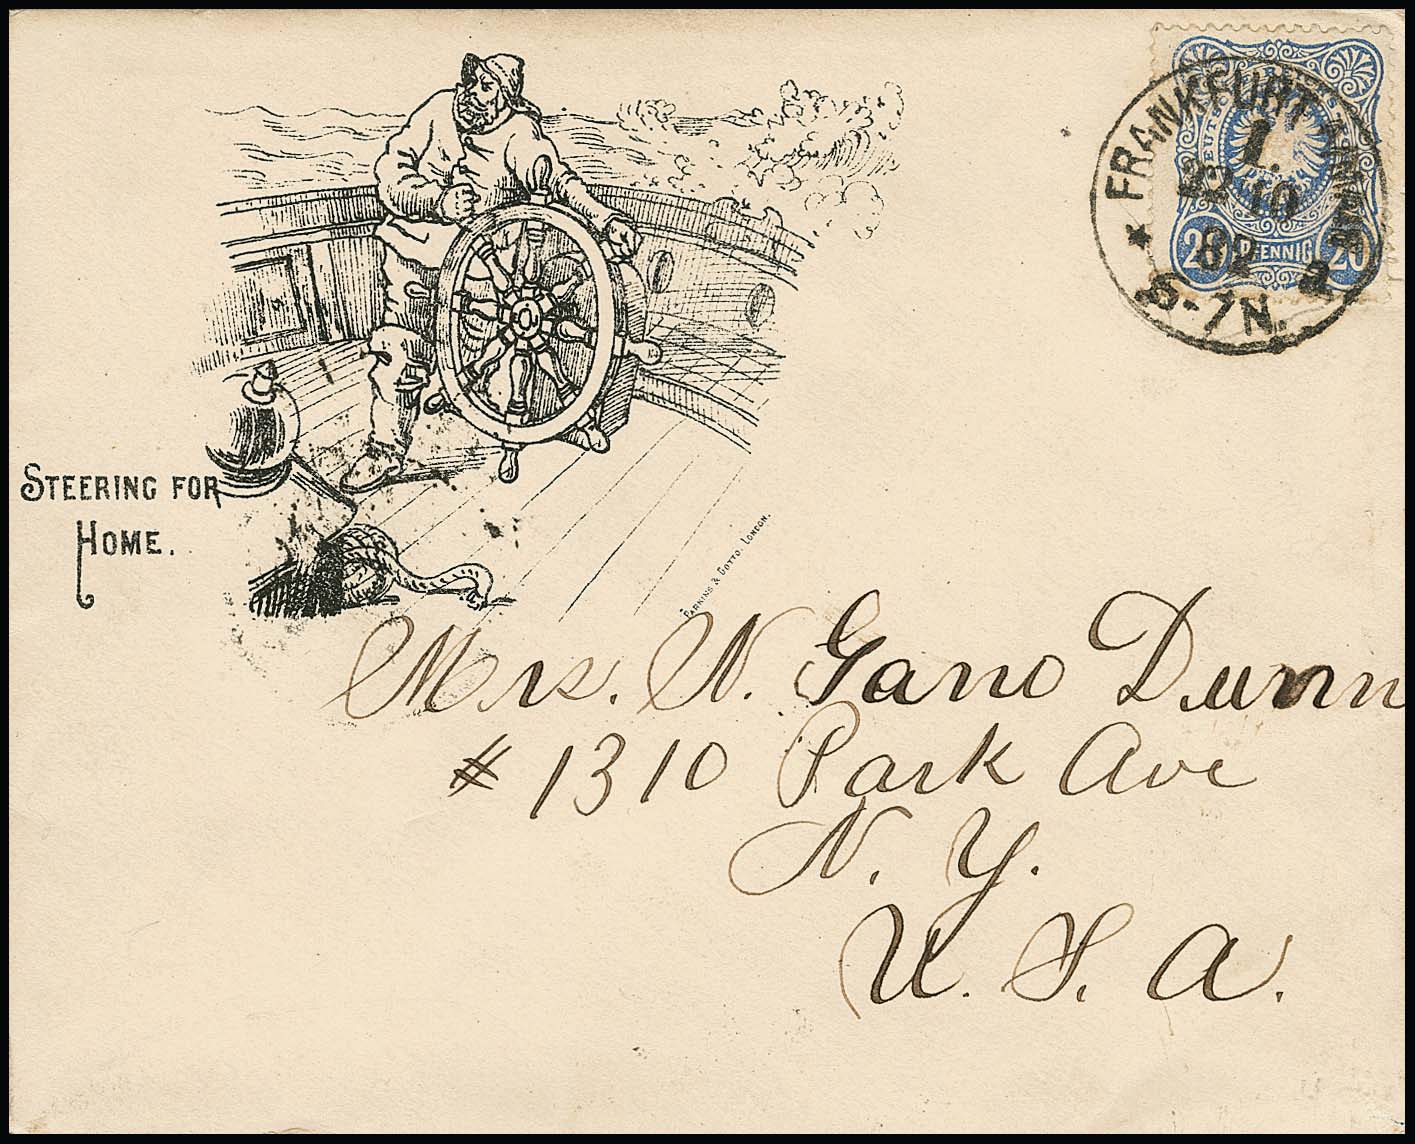 STEERING FOR
HOME.
PARKINS & GOTTO. LONDON.
FRANKFURT
1.
10
82
6-7N.
20 PFENNIG 20
Mrs. N. Gano Dunn
# 1310 Park Ave
N. Y.
U. S. A.